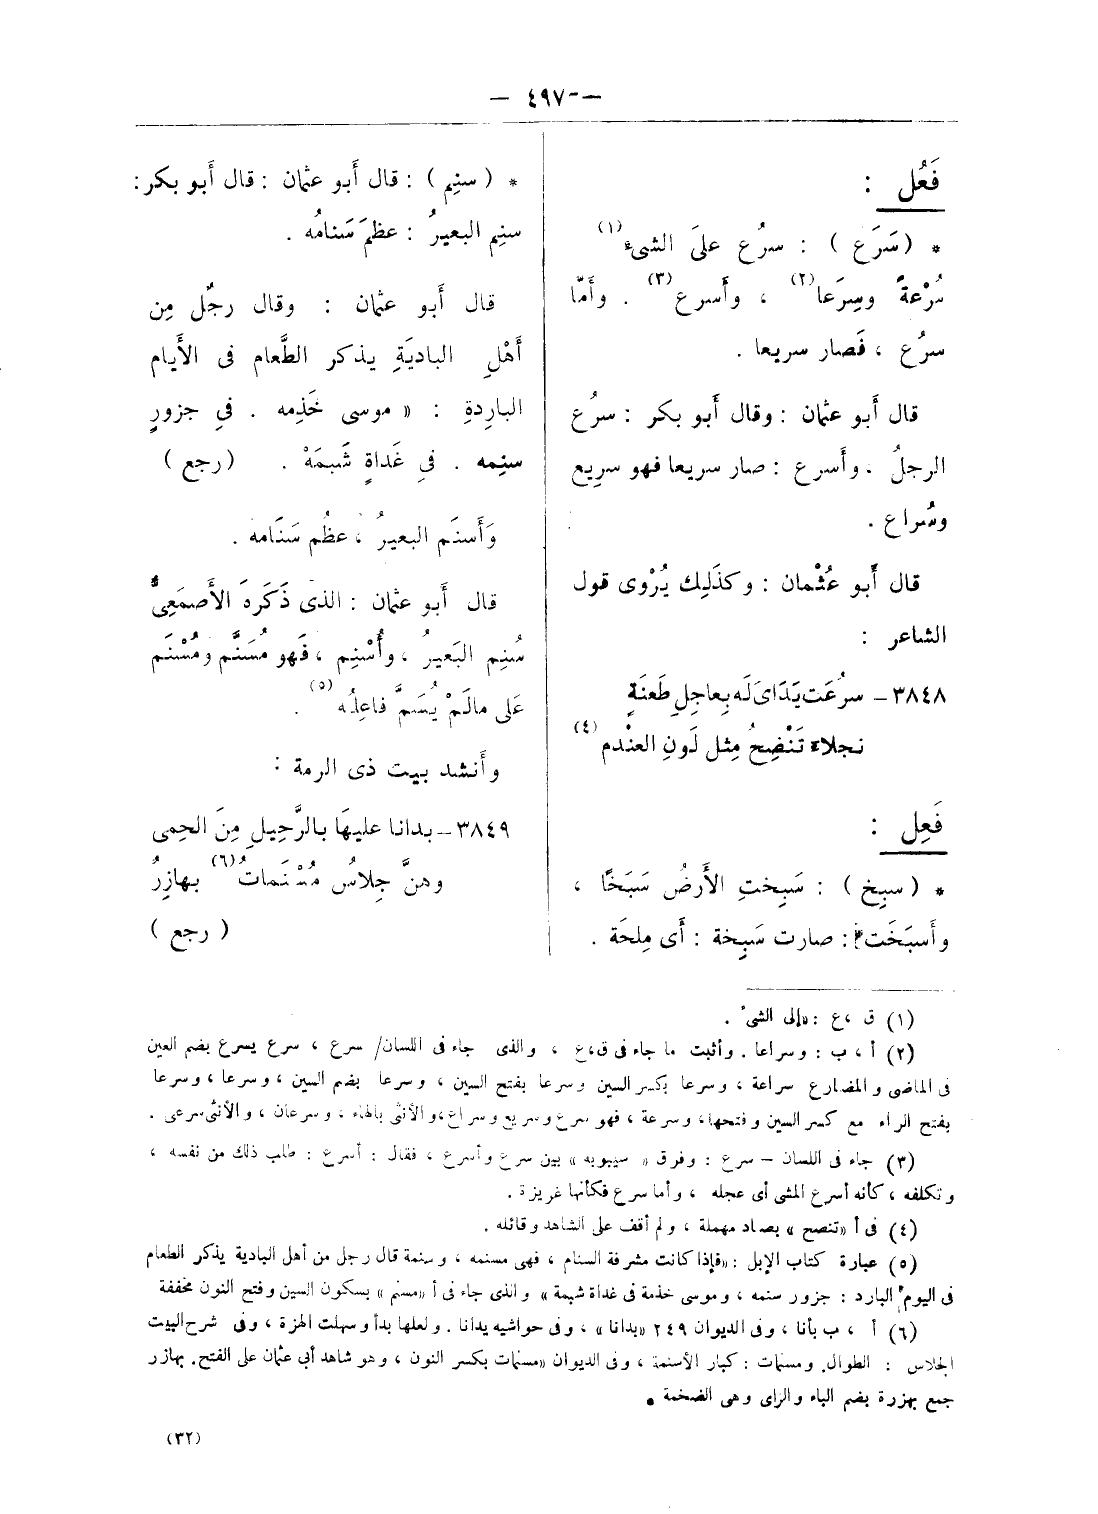 — ٤٩٧ —
فَعُل :
* ( سَرَع ) : سرُع علىَ الشىء (١)
سُرْعةً وسِرَعا (٢) ، وأَسرع (٣) . وأَمَّا
سرُع ، فَصار سريعا .
قال أَبو عثمان : وقال أَبو بكر : سرُع
الرجلُ . وأَسرع : صار سريعا فهو سرِيع
وسُراع .
قال أَبو عُثْمان : وكذَلِك يُرْوى قول
الشاعر :
٣٨٤٨ – سرُعَت يَدَاىَ لَه بِعاجِلِ طَعنَةٍ
نجلاء تَنْضِحُ مِثل لَونِ العنْدم (٤)
فَعِل :
* ( سبِخ ) : سَبِختِ الأَرضُ سَبَخًا ،
وأَسبَخَت : صارت سَبِخة : أَى مِلحَة .
* ( سنِم ) : قال أَبو عثمان : قال أَبو بكر :
سنِم البعيرُ : عظمَ سَنامُه .
قال أَبو عثمان : وقال رجُل مِن
أَهْلِ الباديَةِ يذكر الطَّعام فى الأَيام
البارِدةِ : « موسى خَذِمه . فىِ جزورٍ
سنِمه . فىِ غَداةٍ شَبِمَهْ . ( رجع )
وَأَسنَم البعيرُ ، عظُم سَنَامه .
قال أَبو عثمان : الذى ذَكَرهَ الأَصمَعِىُّ
سُنِم البَعيرُ ، وأُسْنِم ، فَهو مُسَنَّم ومُسْنَم
عَلى مالَمْ يُسَمَّ فاعِلُه (٥) .
وأَنشد بيت ذى الرمة :
٣٨٤٩ – بدانا عليهَا بالرَّحِيلِ مِنَ الحِمى
وهنَّ جِلاسٌ مُسْنَماتٌ (٦) بهازِرُ
( رجع )
(١) ق ، ع : « إلى الشىء » .
(٢) أ ، ب : وسراعا . وأثبت ما جاء فى ق ، ع ، والذى جاء فى اللسان/ سرع ، سرع يسرع بضم العين
فى الماضى والمضارع سراعة ، وسرعا بكسر السين وسرعا بفتح السين ، وسرعا بضم السين ، وسرعا ، وسرعا
بفتح الراء مع كسر السين وفتحها ، وسرعة ، فهو سرع وسريع وسراع ، والأنثى بالهاء ، وسرعان ، والأنثى سرعى .
(٣) جاء فى اللسان – سرع : وفرق « سيبويه » بين سرع وأسرع ، فقال : أسرع : طلب ذلك من نفسه ،
وتكلفه ، كأنه أسرع المشى أى عجله ، وأما سرع فكأنها غريزة .
(٤) فى أ « تنصح » بصاد مهملة ، ولم أقف على الشاهد وقائله .
(٥) عبارة كتاب الإبل : « فإذا كانت مشرفة السنام ، فهى مسنمه ، وسنمة قال رجل من أهل البادية يذكر الطعام
فى اليوم البارد : جزور سنمه ، وموسى خذمة فى غداة شبمة » والذى جاء فى أ « مسنم » بسكون السين وفتح النون مخففة
(٦) أ ، ب بأنا ، وفى الديوان ٢٤٩ « بدانا » ، وفى حواشيه يدانا . ولعلها بدأ وسهلت الهمزة ، وفى شرح البيت
الجلاس : الطوال. ومسنمات : كبار الأسنمة ، وفى الديوان « مسنمات بكسر النون ، وهو شاهد أبى عثمان على الفتح. بهازر
جمع بهزرة بضم الباء والزاى وهى الضخمة .
(٣٢)